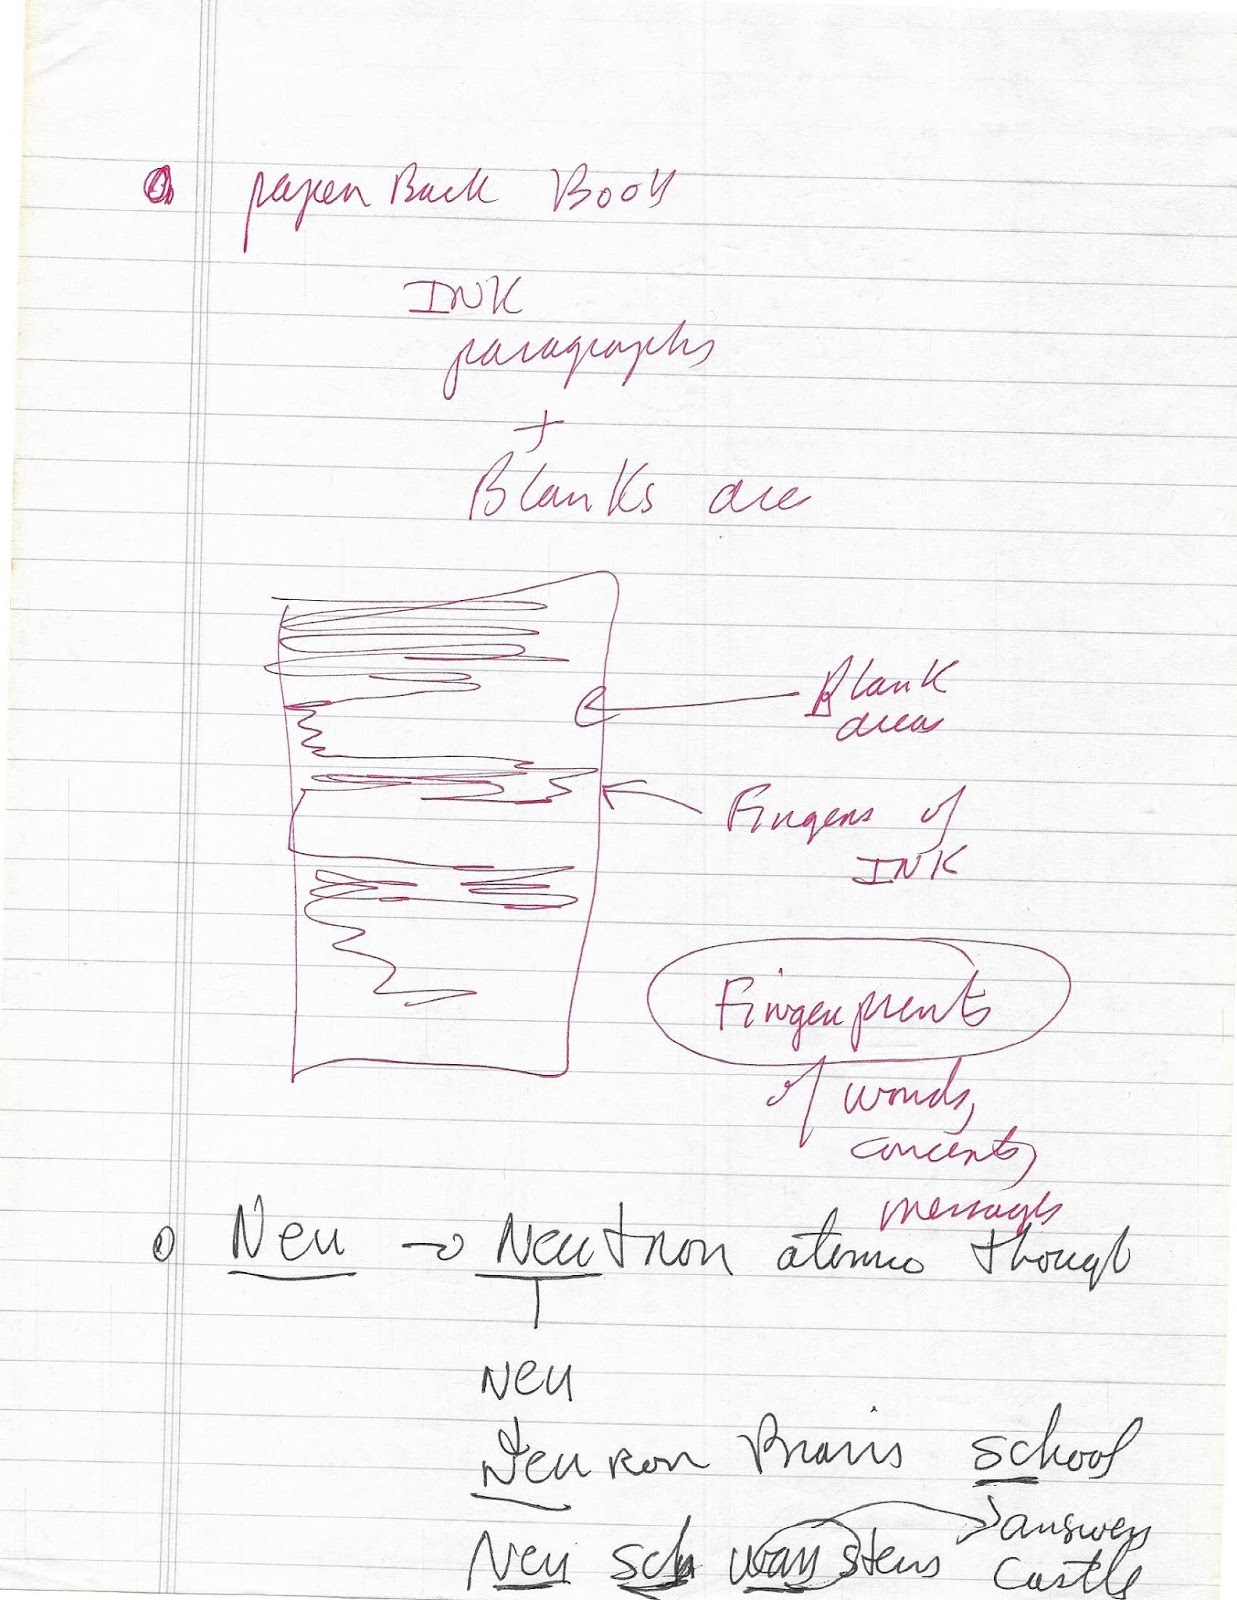 paper Back Book
INK
paragraphs
+
Blanks are
Blank
areas
Fingers of
INK
Fingerprents
of words,
concepts,
messages
Neu → Neutron atomic though
Neu
Neuron Brains school
Neu sch ways tens answers
Castle